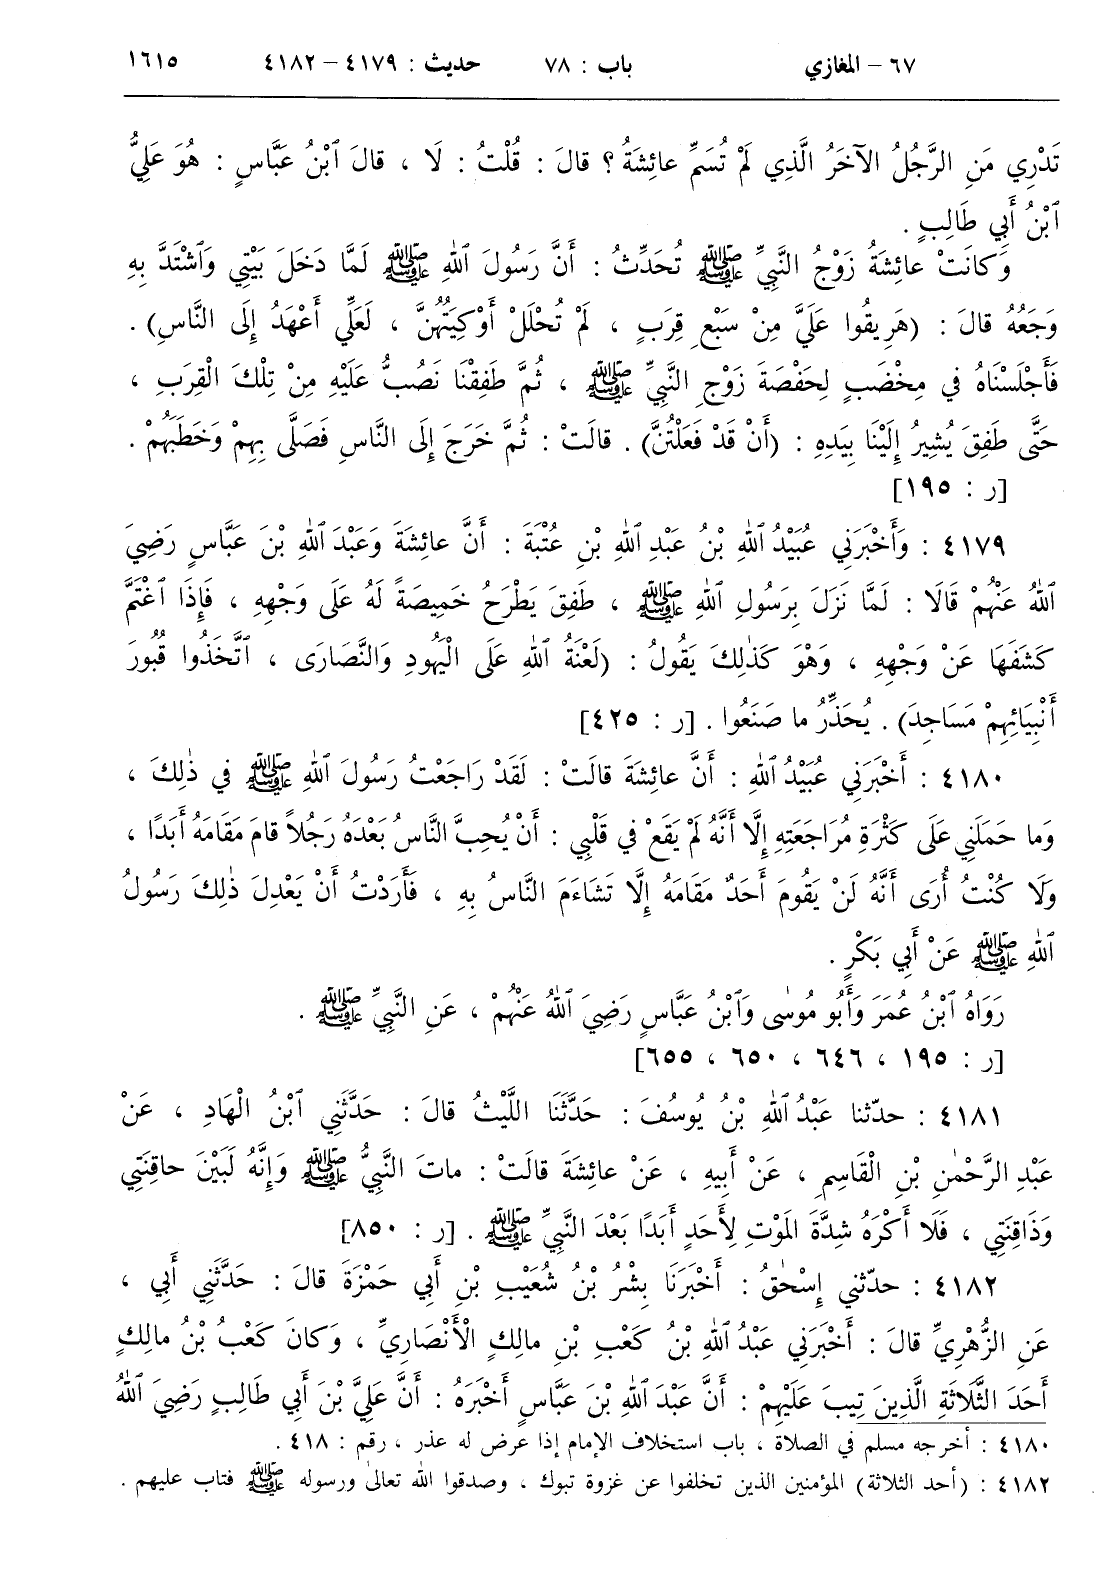 ٦٧ – المغازي باب : ٧٨ حديث : ٤١٧٩ – ٤١٨٢ ١٦١٥
تَدْرِي مَنِ الرَّجُلُ الآخَرُ الَّذِي لَمْ تُسَمِّ عائِشَةُ ؟ قالَ : قُلْتُ : لَا ، قالَ ٱبْنُ عَبَّاسٍ : هُوَ عَلِيُّ
ٱبْنُ أَبِي طَالِبٍ .
وَكانَتْ عائِشَةُ زَوْجُ النَّبِيِّ ﷺ تُحَدِّثُ : أَنَّ رَسُولَ ٱللهِ ﷺ لَمَّا دَخَلَ بَيْتِي وَٱشْتَدَّ بِهِ
وَجَعُهُ قالَ : (هَرِيقُوا عَلَيَّ مِنْ سَبْعِ قِرَبٍ ، لَمْ تُحْلَلْ أَوْكِيَتُهُنَّ ، لَعَلِّي أَعْهَدُ إِلَى النَّاسِ) .
فَأَجْلَسْنَاهُ في مِخْضَبٍ لِحَفْصَةَ زَوْجِ النَّبِيِّ ﷺ ، ثُمَّ طَفِقْنَا نَصُبُّ عَلَيْهِ مِنْ تِلْكَ الْقِرَبِ ،
حَتَّى طَفِقَ يُشِيرُ إِلَيْنَا بِيَدِهِ : (أَنْ قَدْ فَعَلْتُنَّ) . قالَتْ : ثُمَّ خَرَجَ إِلَى النَّاسِ فَصَلَّى بِهِمْ وَخَطَبَهُمْ .
[ر : ١٩٥]
٤١٧٩ : وَأَخْبَرَنِي عُبَيْدُ ٱللهِ بْنُ عَبْدِ ٱللهِ بْنِ عُتْبَةَ : أَنَّ عائِشَةَ وَعَبْدَ ٱللهِ بْنَ عَبَّاسٍ رَضِيَ
ٱللهُ عَنْهُمْ قَالَا : لَمَّا نَزَلَ بِرَسُولِ ٱللهِ ﷺ ، طَفِقَ يَطْرَحُ خَمِيصَةً لَهُ عَلَى وَجْهِهِ ، فَإِذَا ٱغْتَمَّ
كَشَفَهَا عَنْ وَجْهِهِ ، وَهْوَ كَذٰلِكَ يَقُولُ : (لَعْنَةُ ٱللهِ عَلَى الْيَهُودِ وَالنَّصَارَى ، ٱتَّخَذُوا قُبُورَ
أَنْبِيَائِهِمْ مَسَاجِدَ) . يُحَذِّرُ ما صَنَعُوا . [ر : ٤٢٥]
٤١٨٠ : أَخْبَرَنِي عُبَيْدُ ٱللهِ : أَنَّ عائِشَةَ قالَتْ : لَقَدْ رَاجَعْتُ رَسُولَ ٱللهِ ﷺ في ذٰلِكَ ،
وَما حَمَلَنِي عَلَى كَثْرَةِ مُرَاجَعَتِهِ إِلَّا أَنَّهُ لَمْ يَقَعْ في قَلْبِي : أَنْ يُحِبَّ النَّاسُ بَعْدَهُ رَجُلاً قامَ مَقَامَهُ أَبَدًا ،
وَلَا كُنْتُ أُرَى أَنَّهُ لَنْ يَقُومَ أَحَدٌ مَقَامَهُ إِلَّا تَشَاءَمَ النَّاسُ بِهِ ، فَأَرَدْتُ أَنْ يَعْدِلَ ذٰلِكَ رَسُولُ
ٱللهِ ﷺ عَنْ أَبِي بَكْرٍ .
رَوَاهُ ٱبْنُ عُمَرَ وَأَبُو مُوسٰى وَٱبْنُ عَبَّاسٍ رَضِيَ ٱللهُ عَنْهُمْ ، عَنِ النَّبِيِّ ﷺ .
[ر : ١٩٥ ، ٦٤٦ ، ٦٥٠ ، ٦٥٥]
٤١٨١ : حدّثنا عَبْدُ ٱللهِ بْنُ يُوسُفَ : حَدَّثَنَا اللَّيْثُ قالَ : حَدَّثَنِي ٱبْنُ الْهَادِ ، عَنْ
عَبْدِ الرَّحْمٰنِ بْنِ الْقَاسِمِ ، عَنْ أَبِيهِ ، عَنْ عائِشَةَ قالَتْ : ماتَ النَّبِيُّ ﷺ وَإِنَّهُ لَبَيْنَ حاقِنَتِي
وَذَاقِنَتِي ، فَلَا أَكْرَهُ شِدَّةَ المَوْتِ لِأَحَدٍ أَبَدًا بَعْدَ النَّبِيِّ ﷺ . [ر : ٨٥٠]
٤١٨٢ : حدّثني إِسْحٰقُ : أَخْبَرَنَا بِشْرُ بْنُ شُعَيْبِ بْنِ أَبِي حَمْزَةَ قالَ : حَدَّثَنِي أَبِي ،
عَنِ الزُّهْرِيِّ قالَ : أَخْبَرَنِي عَبْدُ ٱللهِ بْنُ كَعْبِ بْنِ مالِكٍ الْأَنْصَارِيِّ ، وَكانَ كَعْبُ بْنُ مالِكٍ
أَحَدَ الثَّلَاثَةِ الَّذِينَ تِيبَ عَلَيْهِمْ : أَنَّ عَبْدَ ٱللهِ بْنَ عَبَّاسٍ أَخْبَرَهُ : أَنَّ عَلِيَّ بْنَ أَبِي طَالِبٍ رَضِيَ ٱللهُ
٤١٨٠ : أخرجه مسلم في الصلاة ، باب استخلاف الإمام إذا عرض له عذر ، رقم : ٤١٨ .
٤١٨٢ : (أحد الثلاثة) المؤمنين الذين تخلفوا عن غزوة تبوك ، وصدقوا الله تعالى ورسوله ﷺ فتاب عليهم .